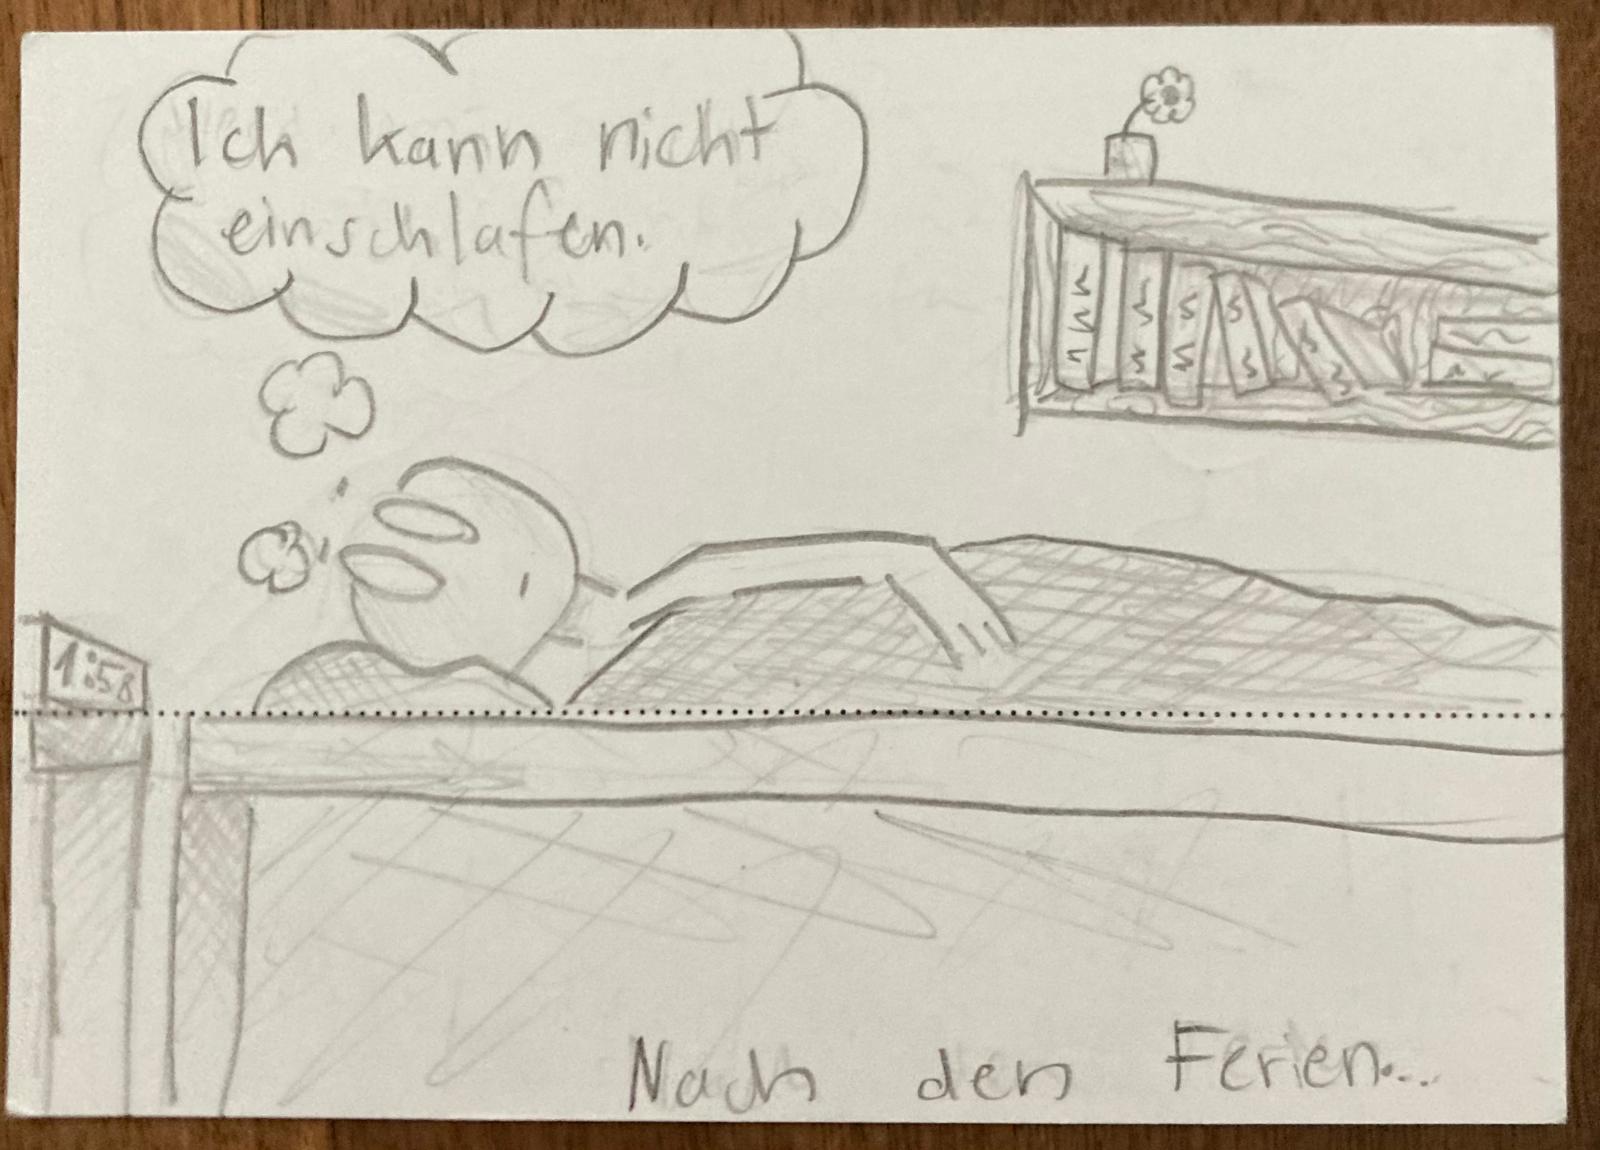 Ich kann nicht
einschlafen.
1:58
Nach den Ferien...